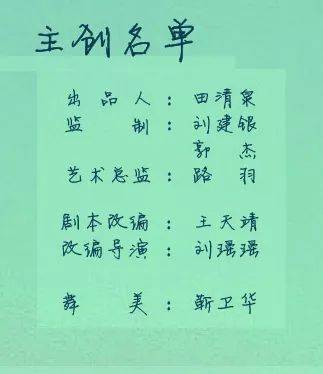 主创名单
出品人：田清泉
监制：刘建银
郭杰
艺术总监：路羽
剧本改编：王天靖
改编导演：刘瑶瑶
舞美：靳卫华